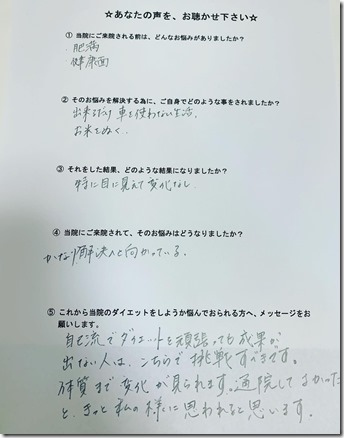 ☆あなたの声を、お聴かせ下さい☆
① 当院にご来院される前は、どんなお悩みがありましたか？
・肥満
健康面
② そのお悩みを解決する為に、ご自身でどのような事をされましたか？
出来るだけ車を使わない生活。
お米をぬく。
③ それをした結果、どのような結果になりましたか？
特に目に見えて変化なし
④ 当院にご来院されて、そのお悩みはどうなりましたか？
かなり解決へと向かっている。
⑤ これから当院のダイエットをしようか悩んでおられる方へ、メッセージをお
願いします。
自己流でダイエットを頑張っても成果が
出ない人は、こちらで挑戦すべきです。
体質まで変化が見られます。通院してよかった
と、きっと私の様に思われると思います。